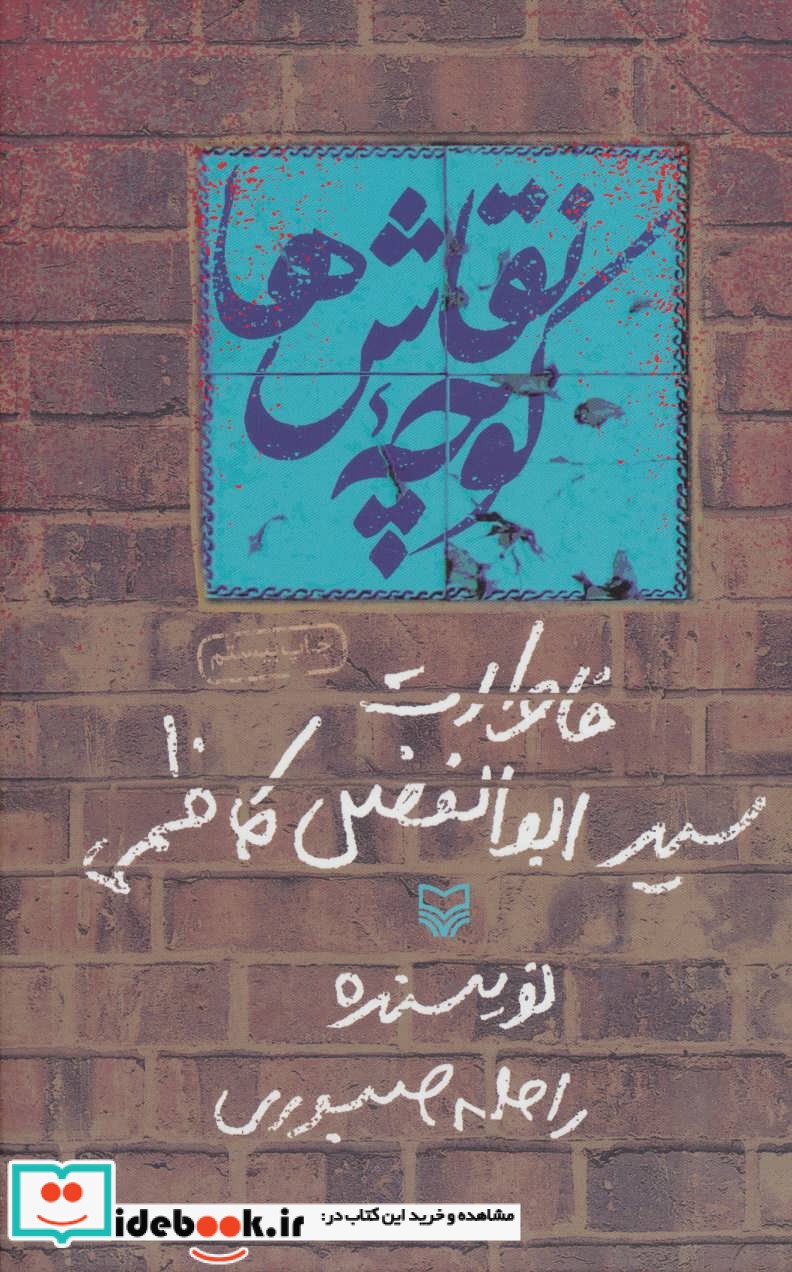 کوچهٔ
نقاش‌ها
چاپ بیستم
خاطرات
سید ابوالفضل کاظمی
نویسنده
راحله صبوری
مشاهده و خرید این کتاب در:
idebook.ir